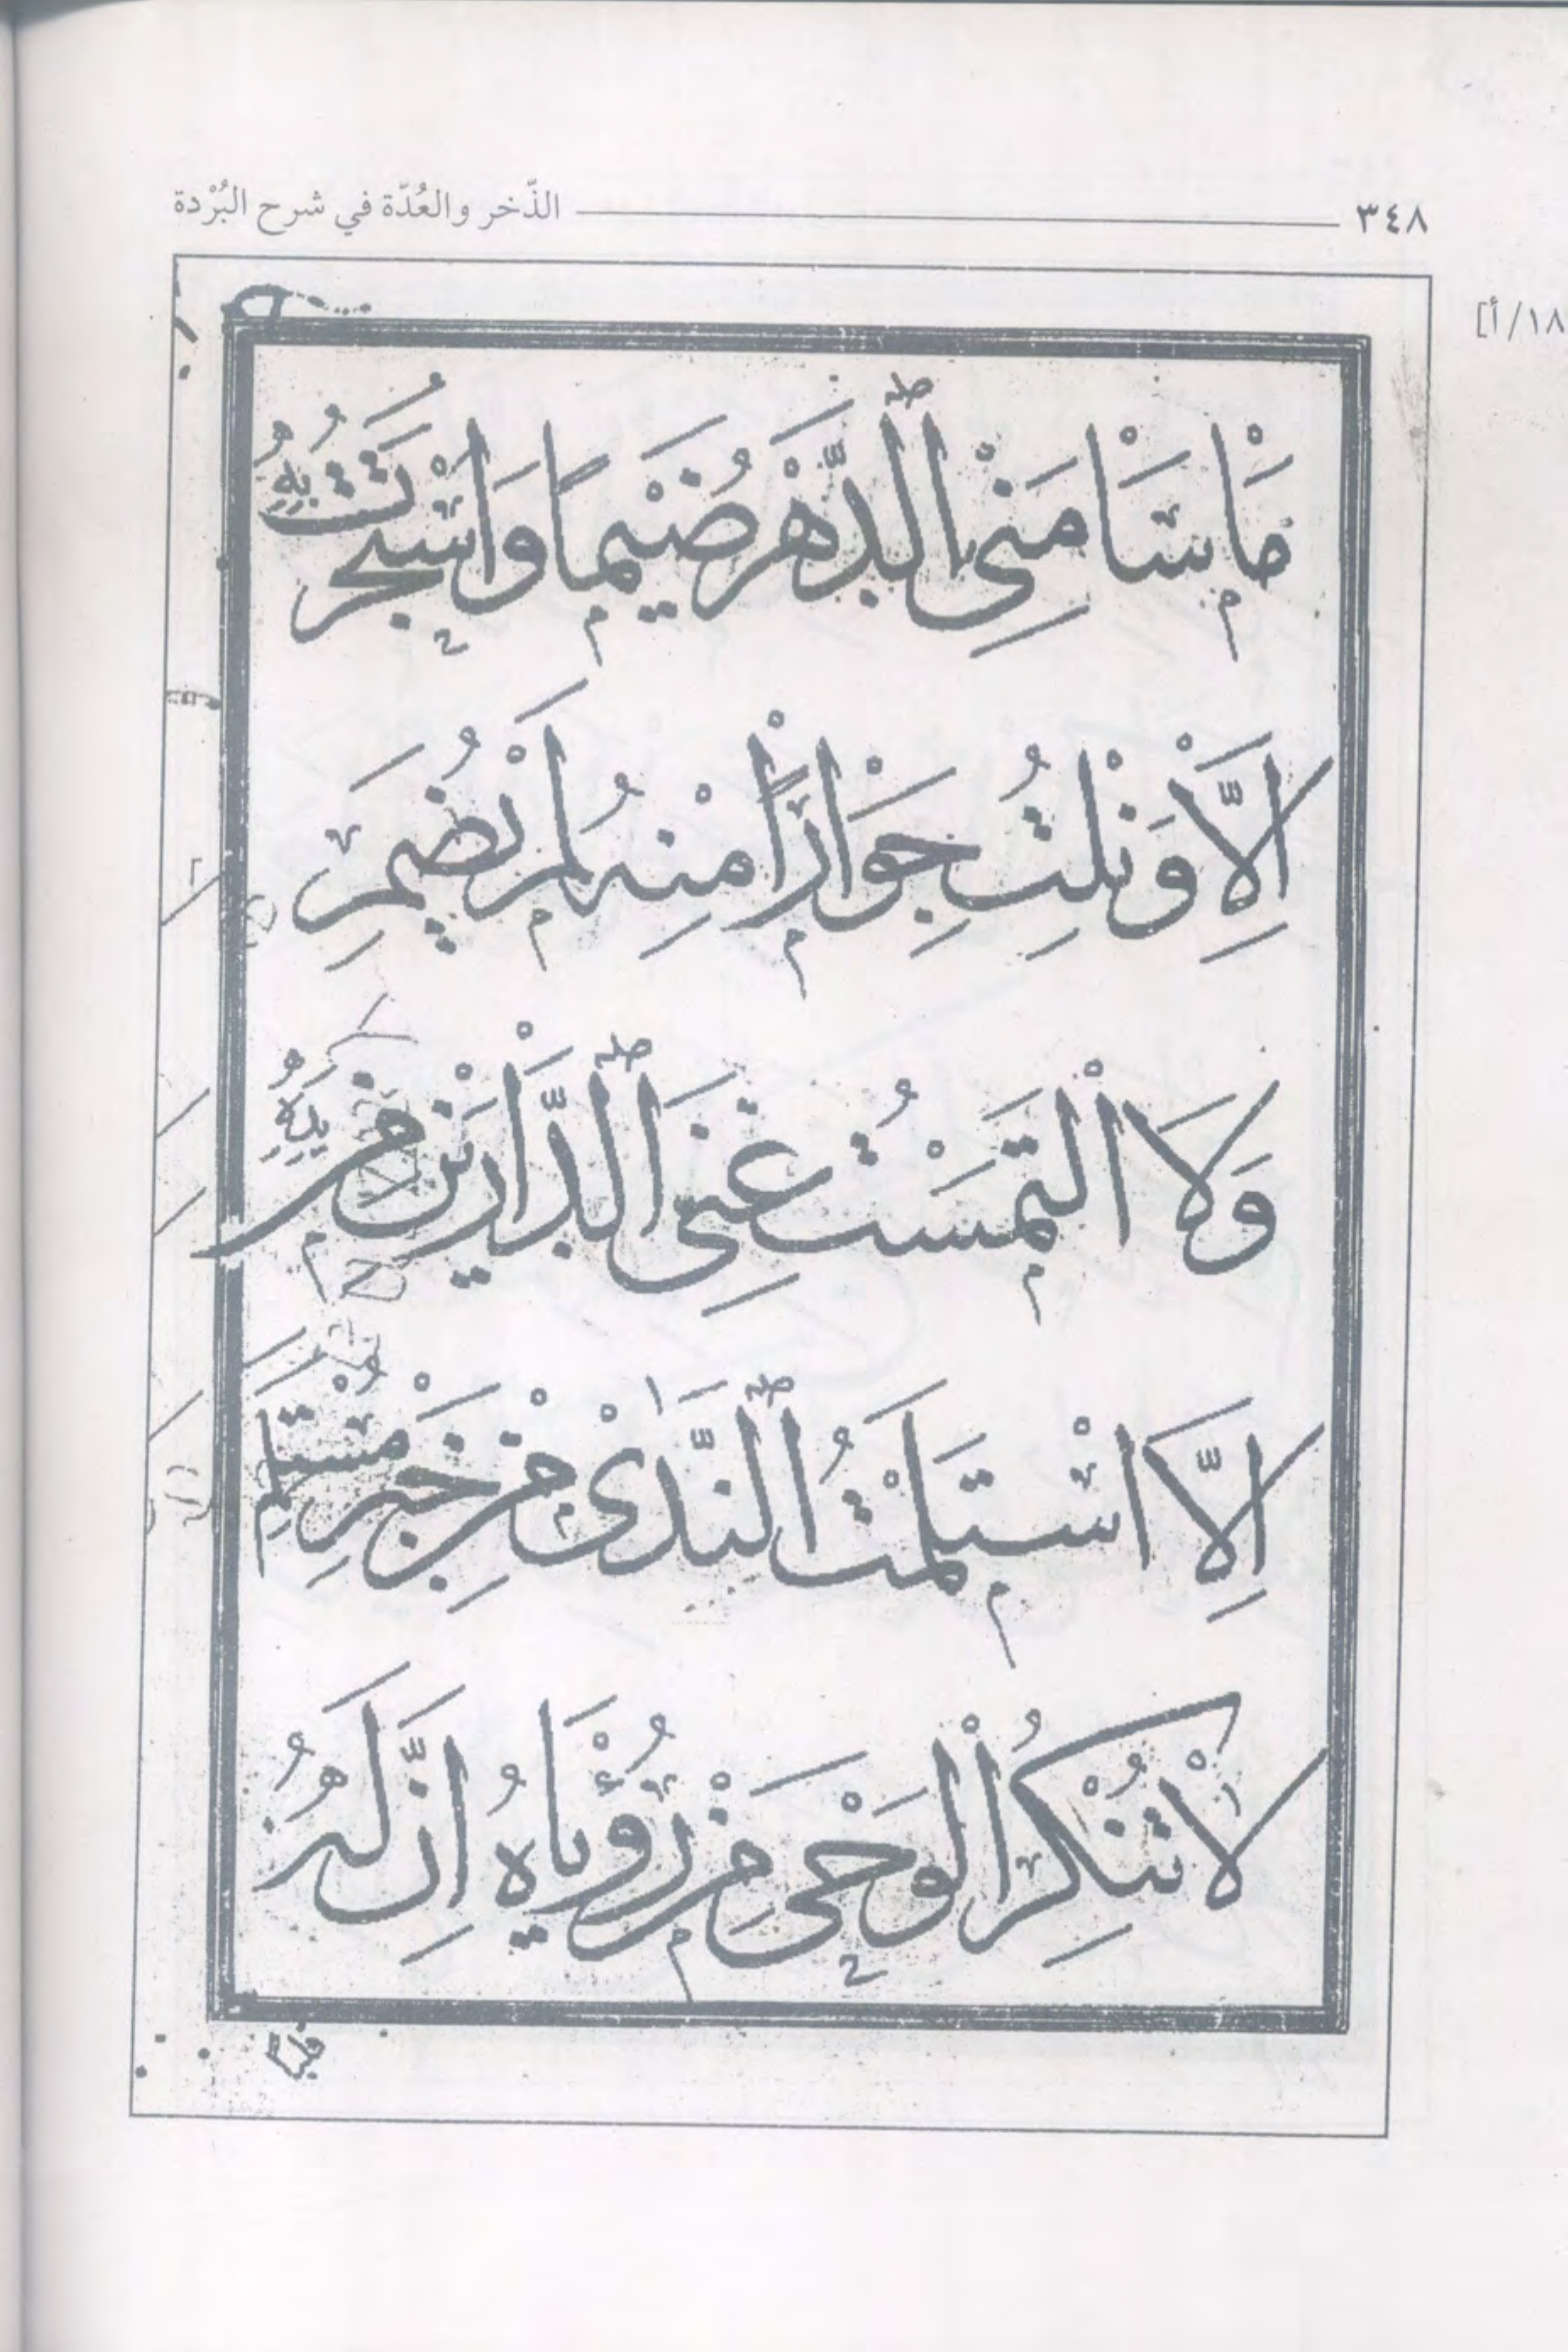 ٣٤٨ الذّخر والعُدّة في شرح البُرْدة
١٨/أ]
مَاسَامَنِى الدَّهْرُ ضَيْمًا وَاسْتَجَرْتُ بِهِ
اِلَّا وَنِلْتُ جِوَارًا مِنْهُ لَمْ يُضَمِ
وَلَا الْتَمَسْتُ غِنَى الدَّارَيْنِ مِنْ يَدِهِ
اِلَّا اسْتَلَمْتُ النَّدَى مِنْ خَيْرِ مُسْتَلَمِ
لَا تُنْكِرُ الْوَحْىَ مِنْ رُؤْيَاهُ اِنَّ لَهُ
قلبًا